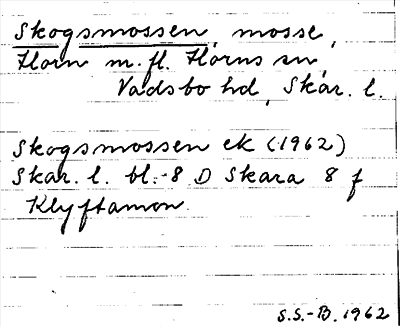 Skogsmossen, mosse,
Horn m.fl. Horns sn,
Vadsbo hd, Skar. l.
Skogsmossen ek (1962)
Skar. l. bl. 8 D Skara 8 f
Klyftamon
S.S.-B. 1962